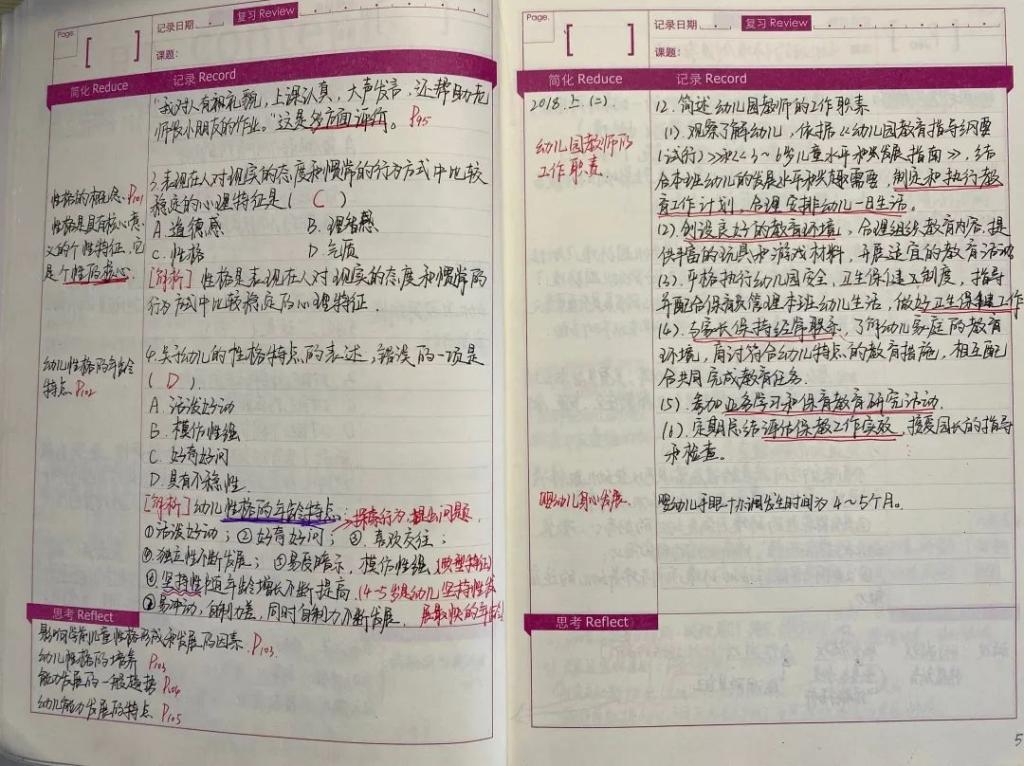 Page.
[ ]
记录日期
复习 Review
课题:
简化 Reduce
记录 Record
"我对人有礼貌,上课认真,大声发言,还帮助老
师收小朋友的作业。"这是多方面评价。P95
3.表现在人对现实的态度和惯常的行为方式中比较
稳定的心理特征是( C )
A.道德感 B.理智感
C.性格 D.气质
[解析] 性格是表现在人对现实的态度和惯常的
行为方式中比较稳定的心理特征.
性格的概念.P101
性格是具有核心意
义的个性特征,它
是个性的核心.
幼儿性格的年龄
特点.P102
4.关于幼儿的性格特点的表述,错误的一项是
( D ).
A.活泼好动
B.模仿性强
C.好奇好问
D.具有不稳性.
[解析]幼儿性格的年龄特点.:
探索行为,提出问题.
①活泼好动;②好奇好问;③.喜欢交往;
④.独立性不断发展;⑤易受暗示,模仿性强(典型特征)
⑥坚持性随年龄增长不断提高.(4-5岁是幼儿坚持性发
⑦易冲动,自制力差,同时自制力不断发展. 展最快的年龄)
思考 Reflect
影响学前儿童性格形成和发展的因素.P103.
幼儿性格的培养 P103
能力发展的一般趋势 P104
幼儿能力发展的特点 P105
Page.
[ ]
记录日期
复习 Review
课题:
简化 Reduce
记录 Record
2018.上.(二).
幼儿园教师的
工作职责.
12.简述幼儿园教师的工作职责
(1).观察了解幼儿,依据《幼儿园教育指导纲要
(试行)》和《3~6岁儿童水平和发展指南》,结
合本班幼儿的发展水平和兴趣需要,制定和执行教
育工作计划,合理安排幼儿一日生活。
(2).创设良好的教育环境,合理组织教育内容,提
供丰富的玩具和游戏材料,开展适宜的教育活动
(3).严格执行幼儿园安全,卫生保健工制度,指导
并配合保育员管理本班幼儿生活,做好卫生保健工作
(4).与家长保持经常联系,了解幼儿家庭的教育
环境,商讨符合幼儿特点的教育措施,相互配
合共同完成教育任务.
(5).参加业务学习和保育教育研究活动.
(6).定期总结评估保教工作实效,接受园长的指导
和检查。
婴幼儿身心发展.
婴幼儿手眼协调发生时间为4~5个月。
思考 Reflect
5